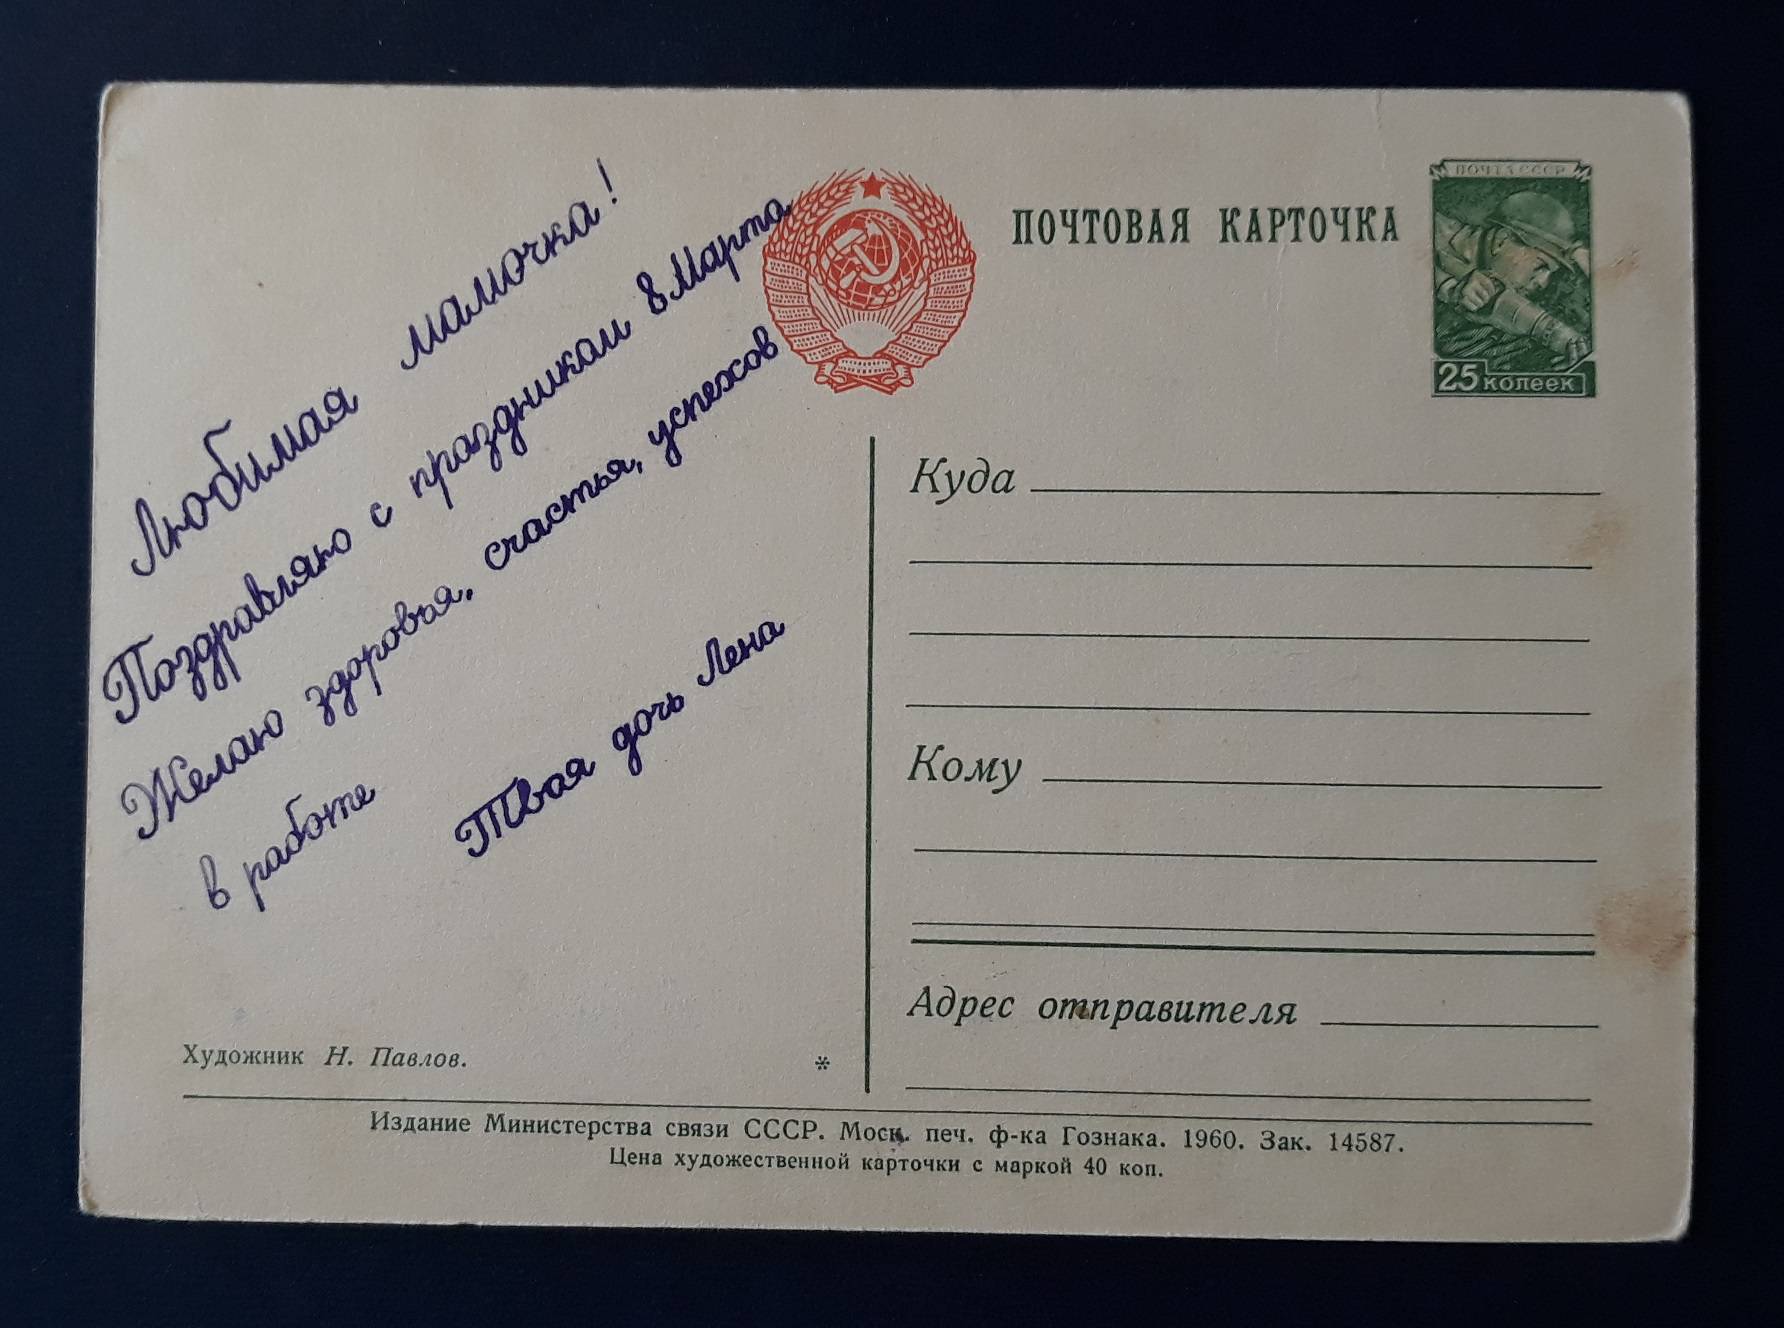 Любимая мамочка!
Поздравляю с праздником 8 Марта
Желаю здоровья, счастья, успехов
в работе
Твая дочь Лена
Художник Н. Павлов.
*
ПОЧТОВАЯ КАРТОЧКА
ПОЧТА СССР
25 КОПЕЕК
Куда
Кому
Адрес отправителя
Издание Министерства связи СССР. Моск. печ. ф-ка Гознака. 1960. Зак. 14587.
Цена художественной карточки с маркой 40 коп.